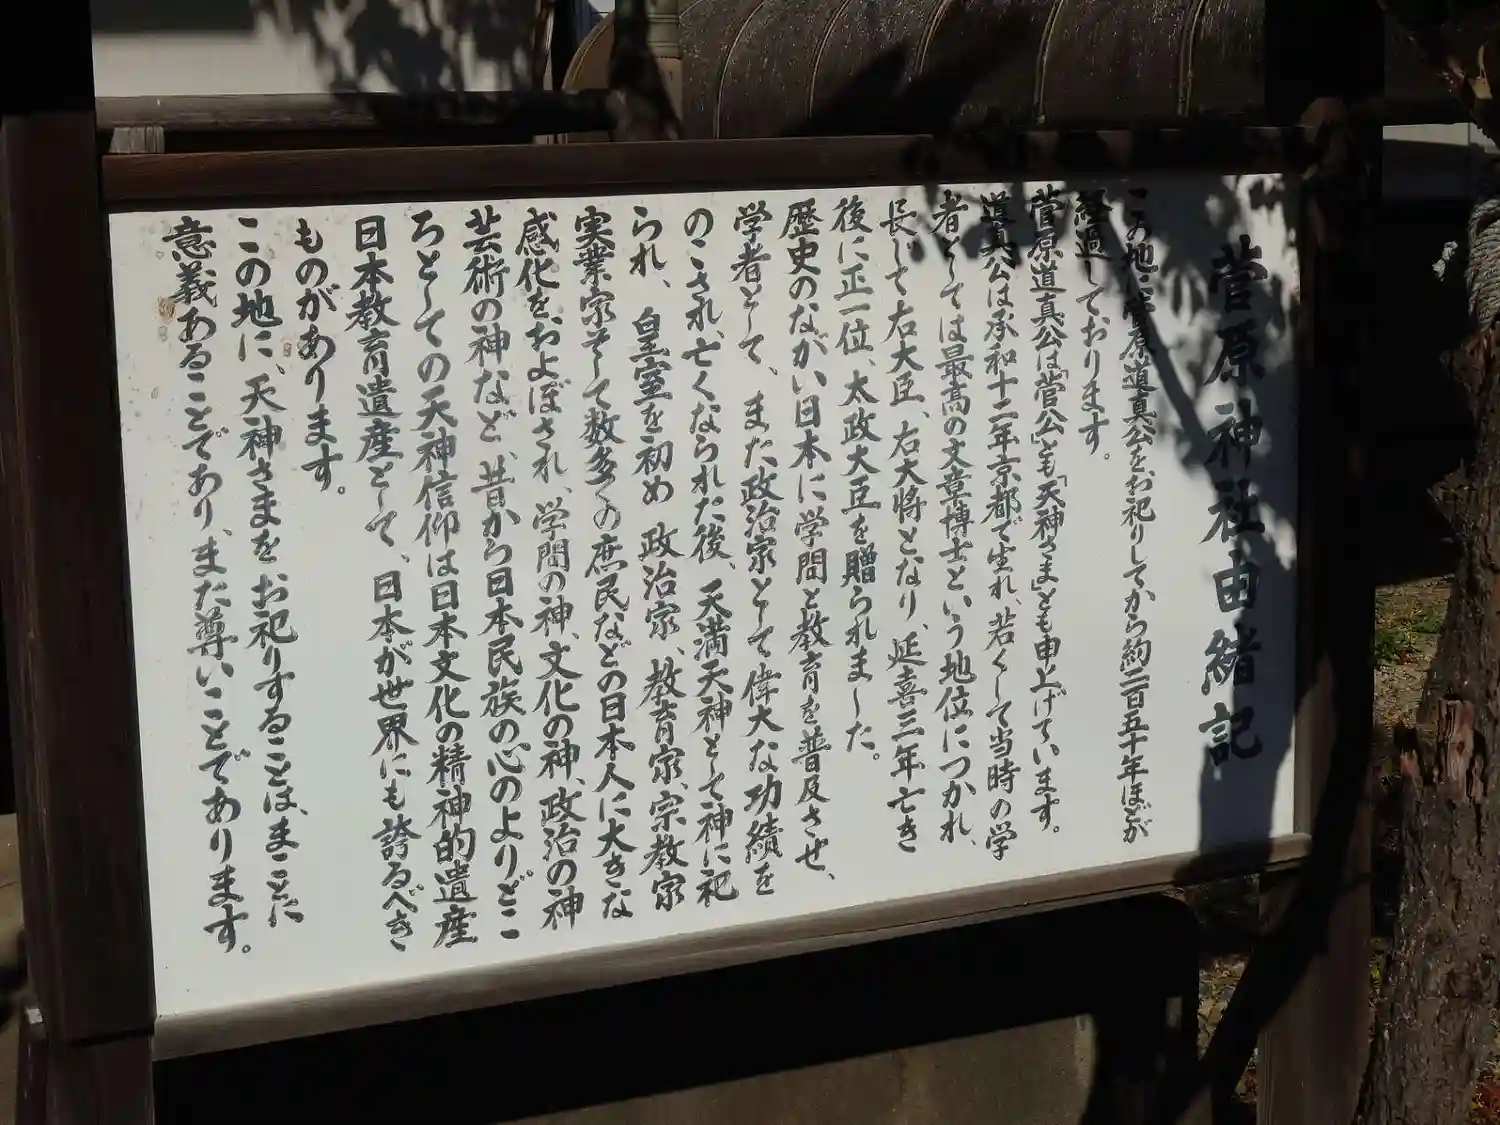 菅原神社由緒記
この地に菅原道真公をお祀りしてから約二百五十年ほどが
経過しております。
菅原道真公は「菅公」とも「天神さま」とも申上げています。
道真公は承和十二年京都で生れ、若くして当時の学
者としては最高の文章博士という地位につかれ、
長じて右大臣、右大将となり、延喜三年亡き
後に正一位、太政大臣を贈られました。
歴史のながい日本に学問と教育を普及させ、
学者として、また政治家として偉大な功績を
のこされ、亡くなられた後、天満天神として神に祀
られ、皇室を初め政治家、教育家、宗教家
実業家そして数多くの庶民などの日本人に大きな
感化をおよぼされ、学問の神、文化の神、政治の神
芸術の神など、昔から日本民族の心のよりどこ
ろとしての天神信仰は日本文化の精神的遺産
日本教育遺産として、日本が世界にも誇るべき
ものがあります。
この地に、天神さまをお祀りすることは、まことに
意義あることであり、また尊いことであります。